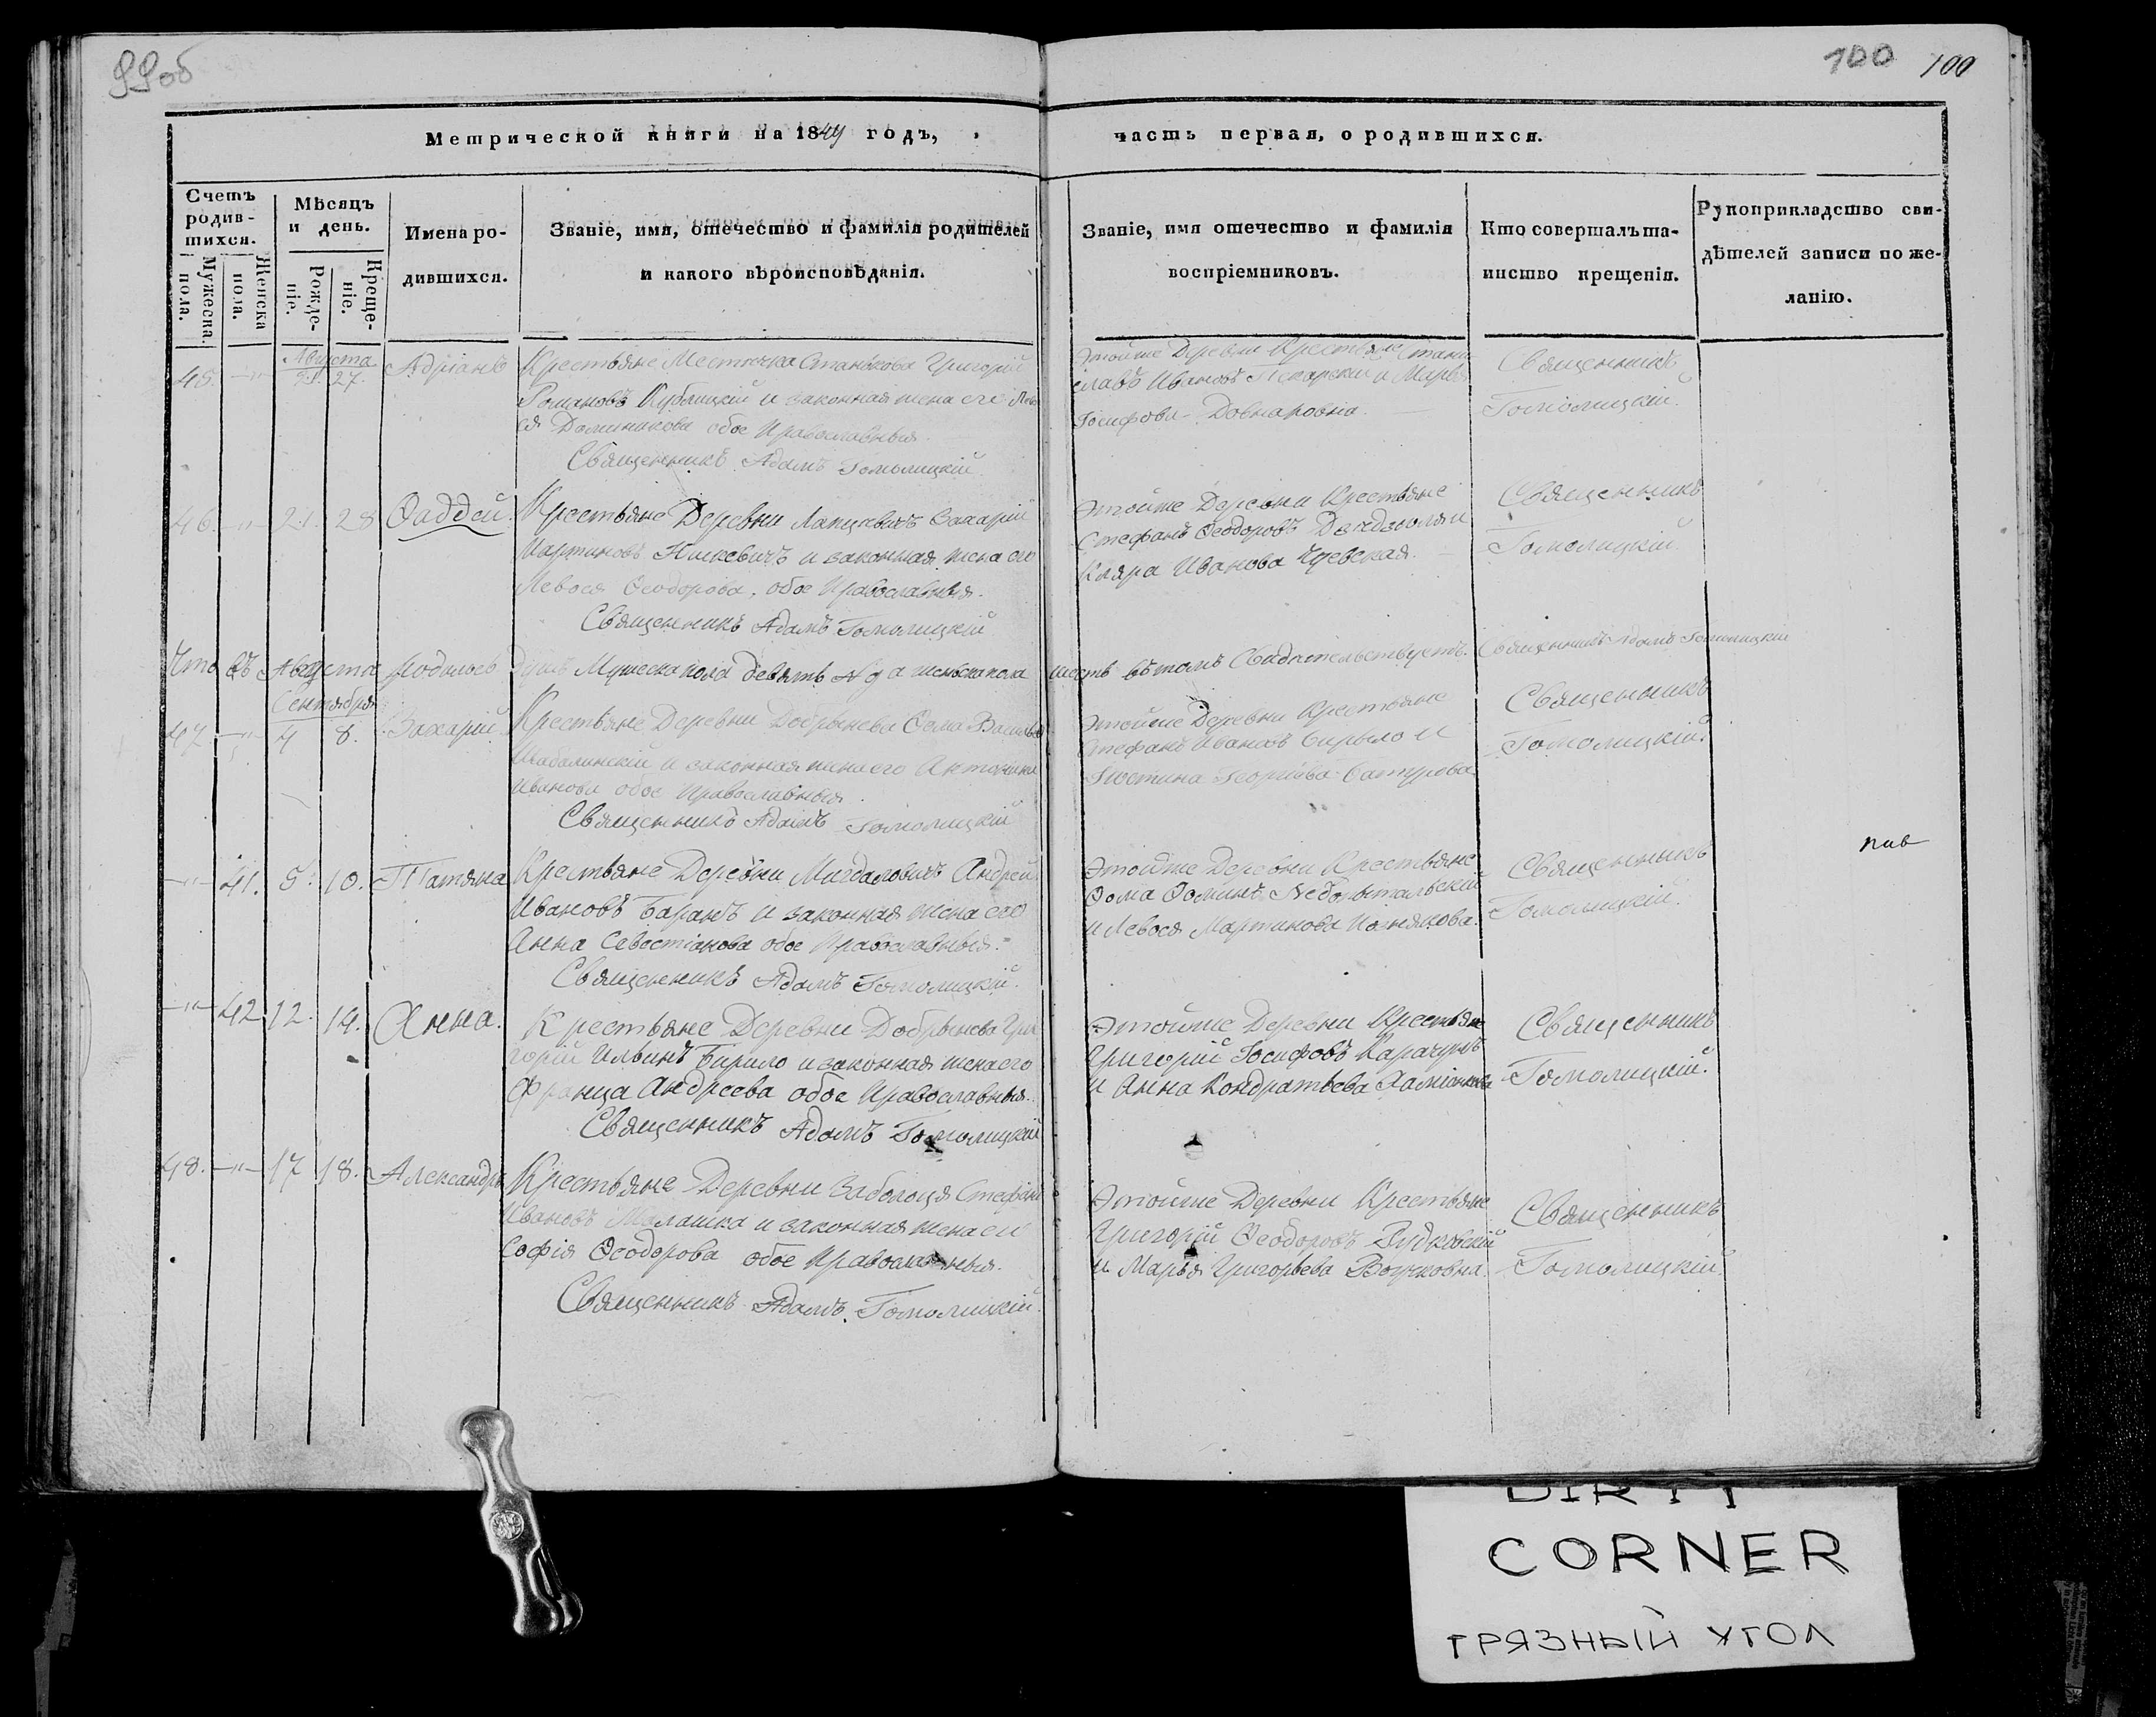 99об
100 100
Метрической книги на 1849 годъ, часть первая, о родившихся.
Счетъ родив-шихся.
Мужеска пола.
Женска пола.
Мѣсяцъ и день.
Рожде-ніе.
Креще-ніе.
Имена ро-дившихся.
Званіе, имя, отечество и фамилія родителей
и какого вѣроисповѣданія.
Званіе, имя отечество и фамилія
воспріемниковъ.
Кто совершалъ та-
инство крещенія.
Рукоприкладство сви-
дѣтелей записи по же-
ланію.
Августа
45. —"— 21. 27. Адріанъ Крестьяне Местечка Станькова Григорій
Романовъ Кублицкій и законная жена его
Доминикова обое Православныя.
Священникъ Адамъ Гомолицкій.
Этойже Деревни Крестьяне Стани
славъ Ивановъ Пекарскій и Марья
Іосифова Довнаровна.
Священникъ
Гомолицкій.
46. —"— 21. 28 Фаддей. Крестьяне Деревни Лапцевичъ Захарій
Мартиновъ и законная жена его
Левося Феодорова, обое Православныя.
Священникъ Адамъ Гомолицкій
Этойже Деревни Крестьяне
Стефанъ Феодоровъ и
Кляра Иванова
Священникъ
Гомолицкій.
Что въ Августа Родилось Душъ Мужеска пола девять № 9 а женска пола шесть въ томъ Свидетельствуетъ. Священникъ Адамъ Гомолицкій
Сентября
47. —"— 4 8. Захарій Крестьяне Деревни Добрынева Фома
и законная жена его Антонина
Иванова обое Православныя.
Священникъ Адамъ Гомолицкій
Этойже Деревни Крестьяне
Стефанъ Ивановъ Бирыло и
Іюстина Георгіева Батурова
Священникъ
Гомолицкій.
—"— 41. 5. 10. Татяна Крестьяне Деревни Мигдаловичъ Андрей
Ивановъ Баранъ и законная жена его
Анна Севостіанова обое Православныя.
Священникъ Адамъ Гомолицкій.
Этойже Деревни Крестьяне
Фома Фоминъ
и Левося Мартинова
Священникъ
Гомолицкій.
—"— 42 12. 14. Анна. Крестьяне Деревни Добрынева Гри
горій Ильинъ Бирило и законная жена его
Франца Андреева обое Православныя.
Священникъ Адамъ Гомолицкій
Этойже Деревни Крестьяне
Григорій Іосифовъ Карачунъ
и Анна Кондратьева
Священникъ
Гомолицкій.
48. —"— 17 18. Александръ Крестьяне Деревни Заболоця Стефанъ
Ивановъ Малашка и законная жена его
Софія Феодорова обое Православныя.
Священникъ Адамъ Гомолицкій.
Этойже Деревни Крестьяне
Григорій Феодоровъ Рудковскій
и Марья Григорьева
Священникъ
Гомолицкій.
DIRTY
CORNER
ГРЯЗНЫЙ УГОЛ